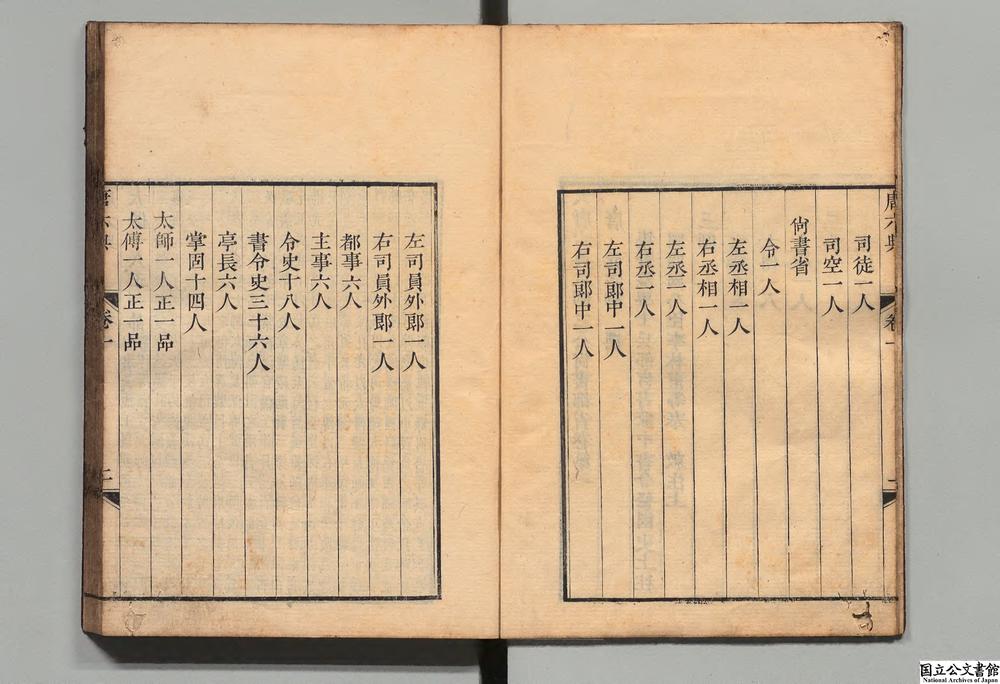 唐六典 卷一
司徒一人
司空一人
尙書省
令一人
左丞相一人
右丞相一人
左丞一人
右丞一人
左司郎中一人
右司郎中一人
左司員外郎一人
右司員外郎一人
都事六人
主事六人
令史十八人
書令史三十六人
亭長六人
掌固十四人
太師一人正一品
太傅一人正一品
唐六典 卷一
国立公文書館
National Archives of Japan